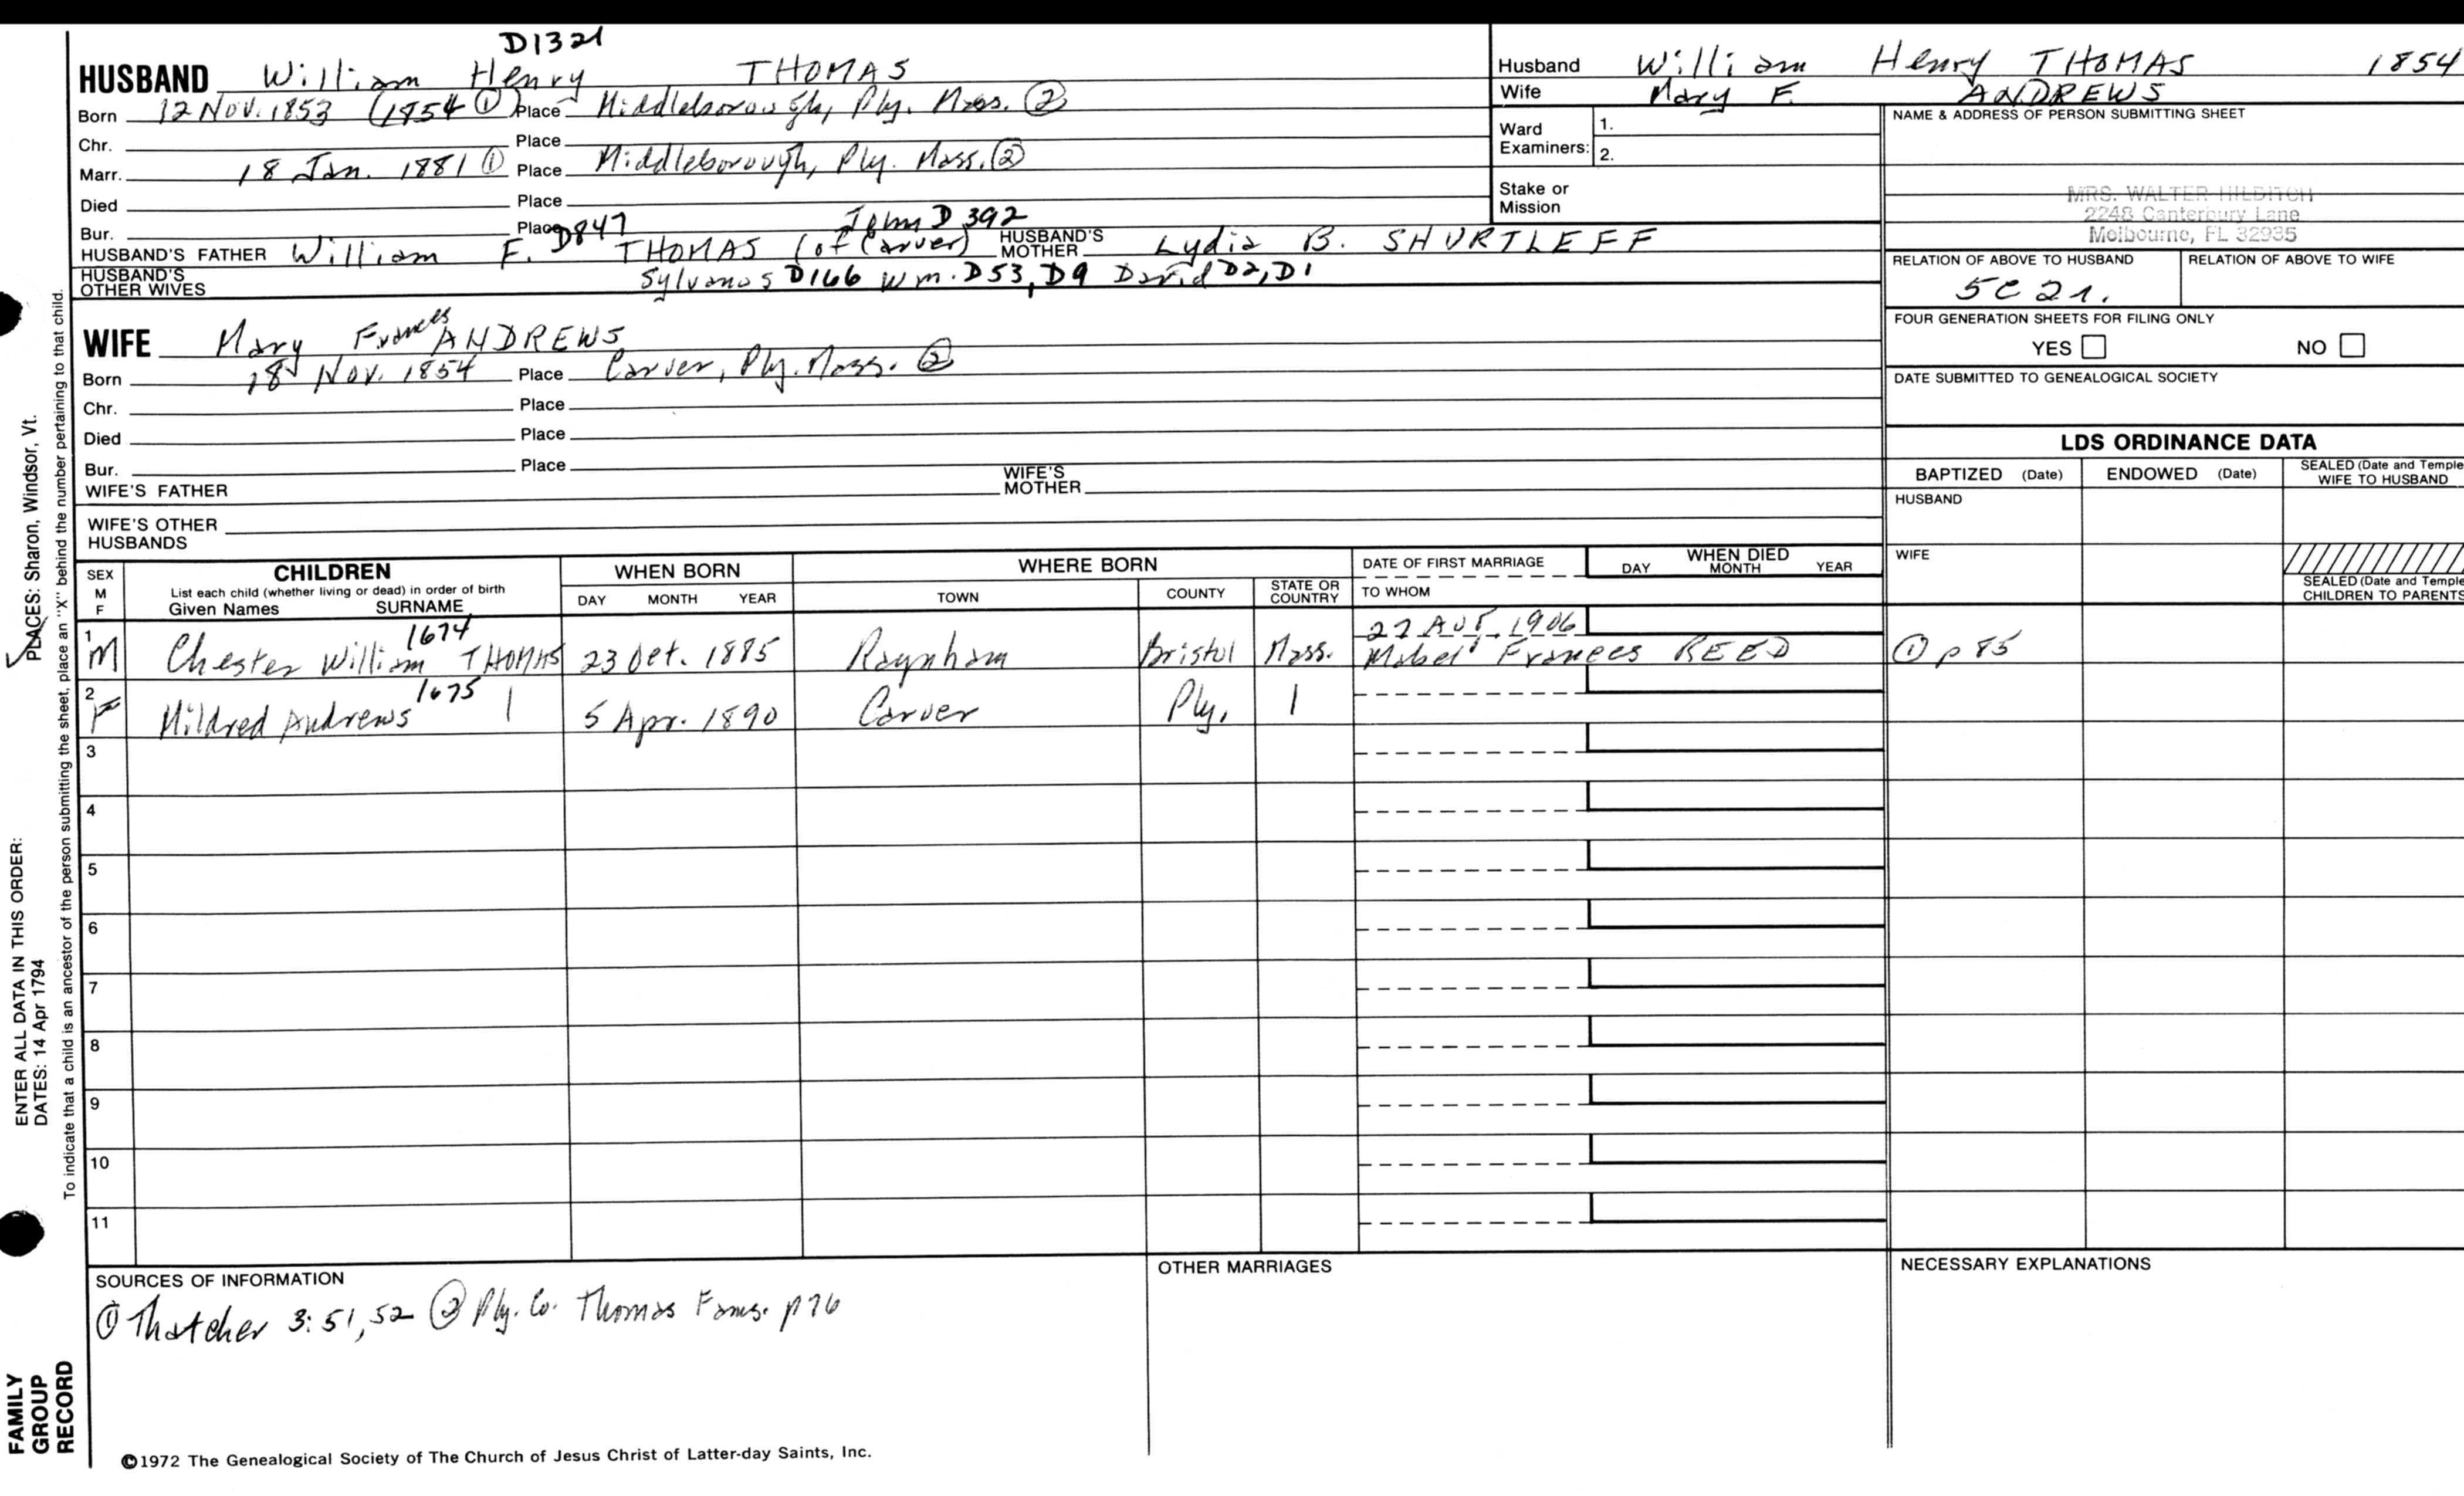 D1321
HUSBAND William Henry THOMAS
Born 12 Nov. 1853 (1854 ①) Place Middleborough, Ply. Mass. ②
Chr. Place
Marr. 18 Jan. 1881 ① Place Middleborough, Ply. Mass. ②
Died Place
Bur. Place D847 John D392
HUSBAND'S FATHER William F. THOMAS (of Carver) HUSBAND'S MOTHER Lydia B. SHURTLEFF
HUSBAND'S OTHER WIVES Sylvanos D166 Wm. D53, D9 David D2, D1
WIFE Mary Frances ANDREWS
Born 18 Nov. 1854 Place Carver, Ply. Mass. ②
Chr. Place
Died Place
Bur. Place
WIFE'S FATHER WIFE'S MOTHER
WIFE'S OTHER HUSBANDS
Husband William Henry THOMAS 1854
Wife Mary F. ANDREWS
Ward Examiners: 1. 2.
Stake or Mission
NAME & ADDRESS OF PERSON SUBMITTING SHEET
MRS. WALTER HILDITCH
2248 Canterbury Lane
Melbourne, FL 32935
RELATION OF ABOVE TO HUSBAND RELATION OF ABOVE TO WIFE
5C 2r.
FOUR GENERATION SHEETS FOR FILING ONLY
YES NO
DATE SUBMITTED TO GENEALOGICAL SOCIETY
LDS ORDINANCE DATA
BAPTIZED (Date) ENDOWED (Date) SEALED (Date and Temple
WIFE TO HUSBAND
HUSBAND
WIFE
SEALED (Date and Temple
CHILDREN TO PARENTS
SEX M F
CHILDREN
List each child (whether living or dead) in order of birth
Given Names SURNAME
WHEN BORN
DAY MONTH YEAR
WHERE BORN
TOWN COUNTY STATE OR COUNTRY
DATE OF FIRST MARRIAGE
TO WHOM
WHEN DIED
DAY MONTH YEAR
1674 27 1906
1 M Chester William THOMAS 23 Oct. 1885 Raynham Bristol Mass. Mabel Frances REED ① p 85
1675
2 F Mildred Andrews | 5 Apr. 1890 Carver Ply. |
3
4
5
6
7
8
9
10
11
SOURCES OF INFORMATION
① Thatcher 3:51,52 ② Ply. Co. Thomas Fams. p76
OTHER MARRIAGES
NECESSARY EXPLANATIONS
©1972 The Genealogical Society of The Church of Jesus Christ of Latter-day Saints, Inc.
FAMILY
GROUP
RECORD
ENTER ALL DATA IN THIS ORDER:
DATES: 14 Apr 1794
PLACES: Sharon, Windsor, Vt.
To indicate that a child is an ancestor of the person submitting the sheet, place an "X" behind the number pertaining to that child.